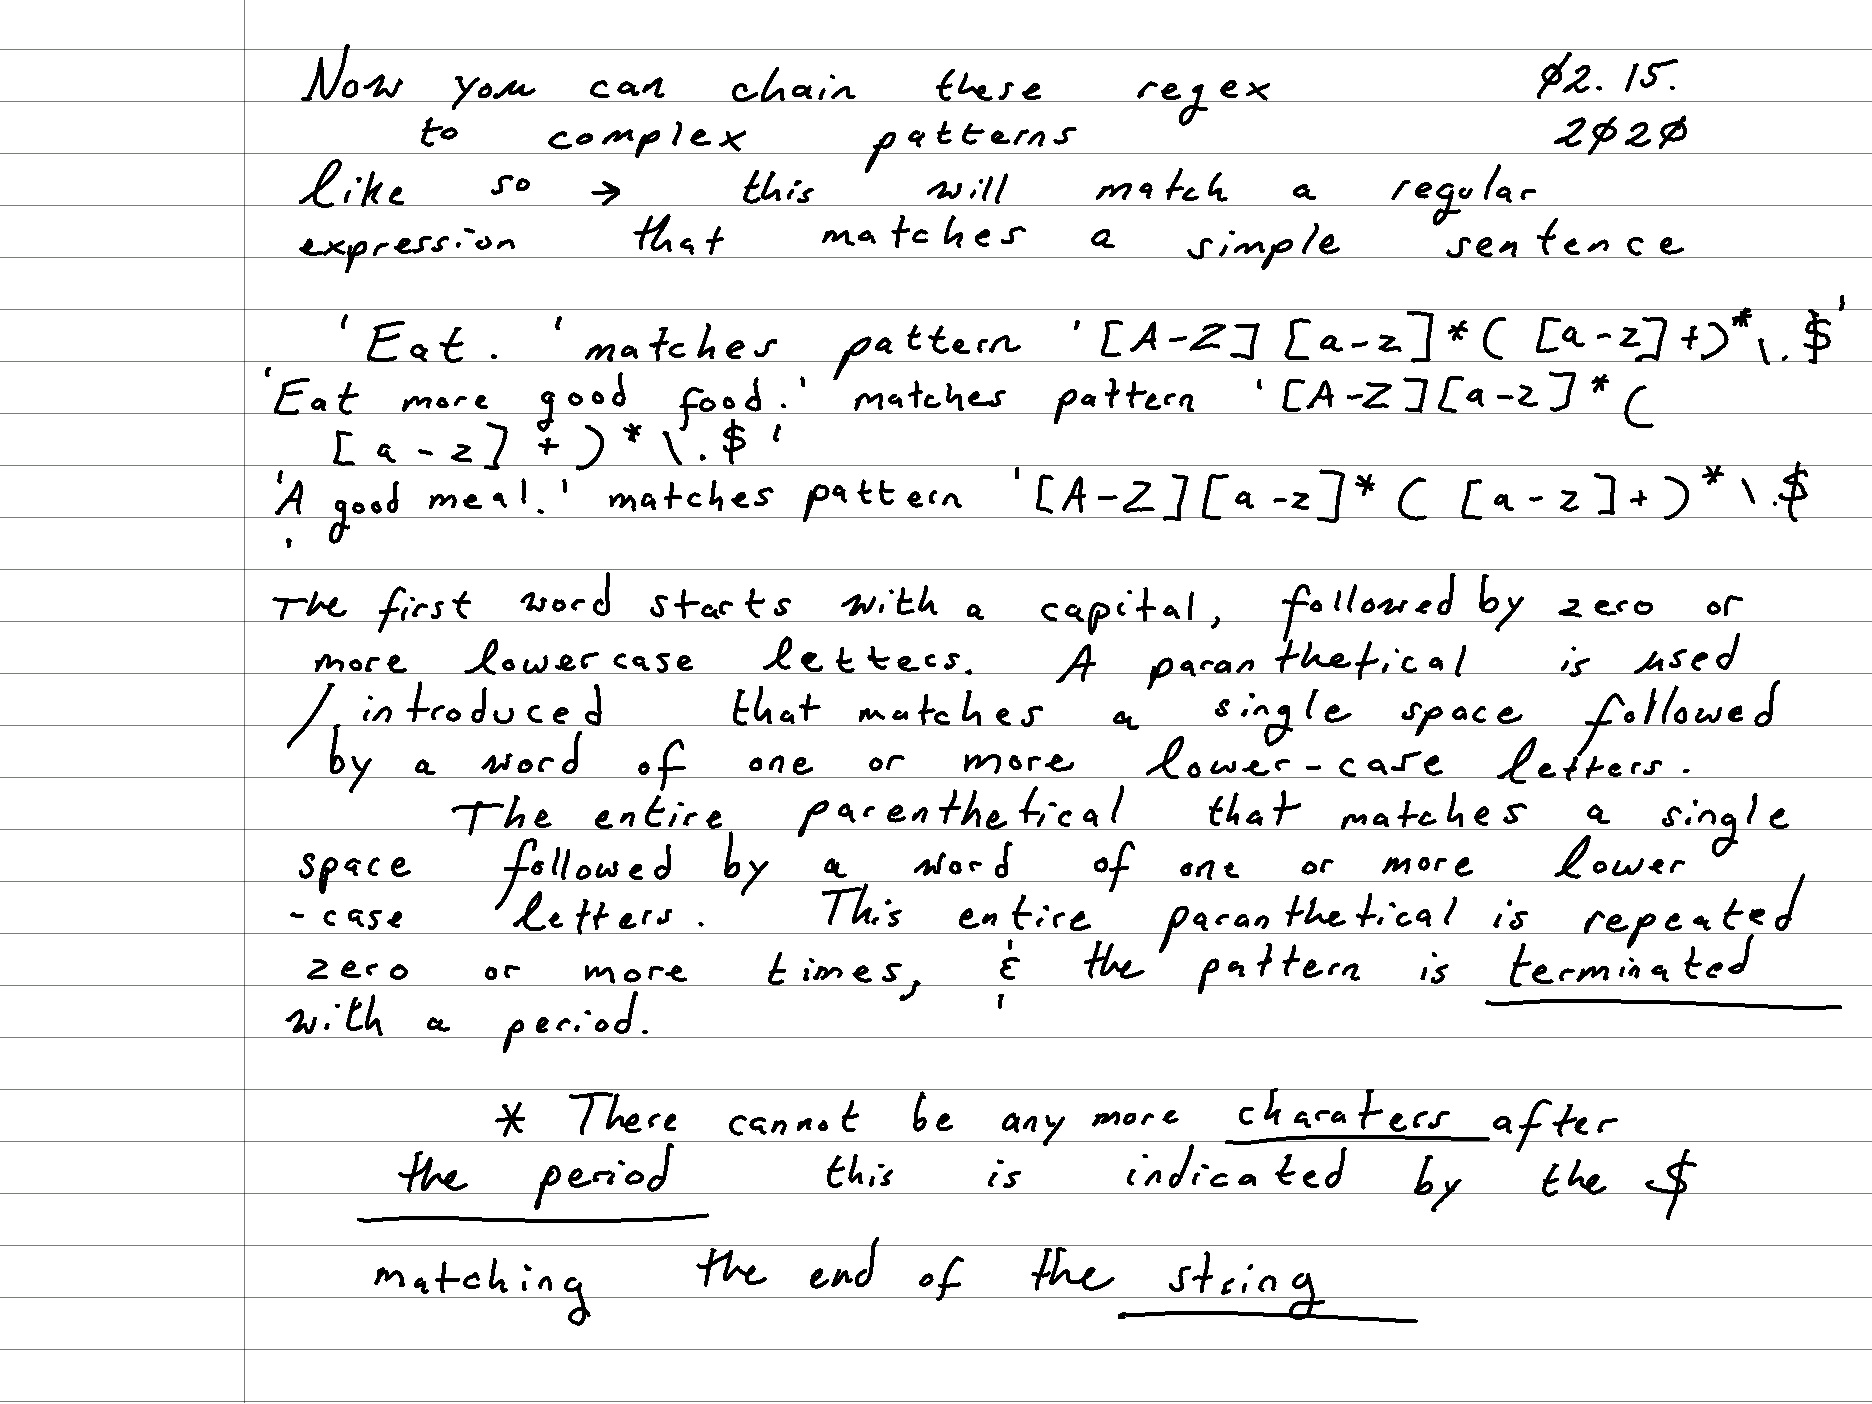 Now you can chain these regex Ø2. 15.
to complex patterns 2Ø2Ø
like so → this will match a regular
expression that matches a simple sentence
'Eat. ' matches pattern '[A-Z][a-z]*( [a-z]+)*\.$'
'Eat more good food.' matches pattern '[A-Z][a-z]*(
[a-z]+)*\.$'
'A good meal.' matches pattern '[A-Z][a-z]*( [a-z]+)*\.$
'
The first word starts with a capital, followed by zero or
more lowercase letters. A paranthetical is used
/ introduced that matches a single space followed
by a word of one or more lower-case letters.
The entire parenthetical that matches a single
space followed by a word of one or more lower
-case letters. This entire paranthetical is repeated
zero or more times, & the pattern is terminated
with a period.
* There cannot be any more charaters after
the period this is indicated by the $
matching the end of the string